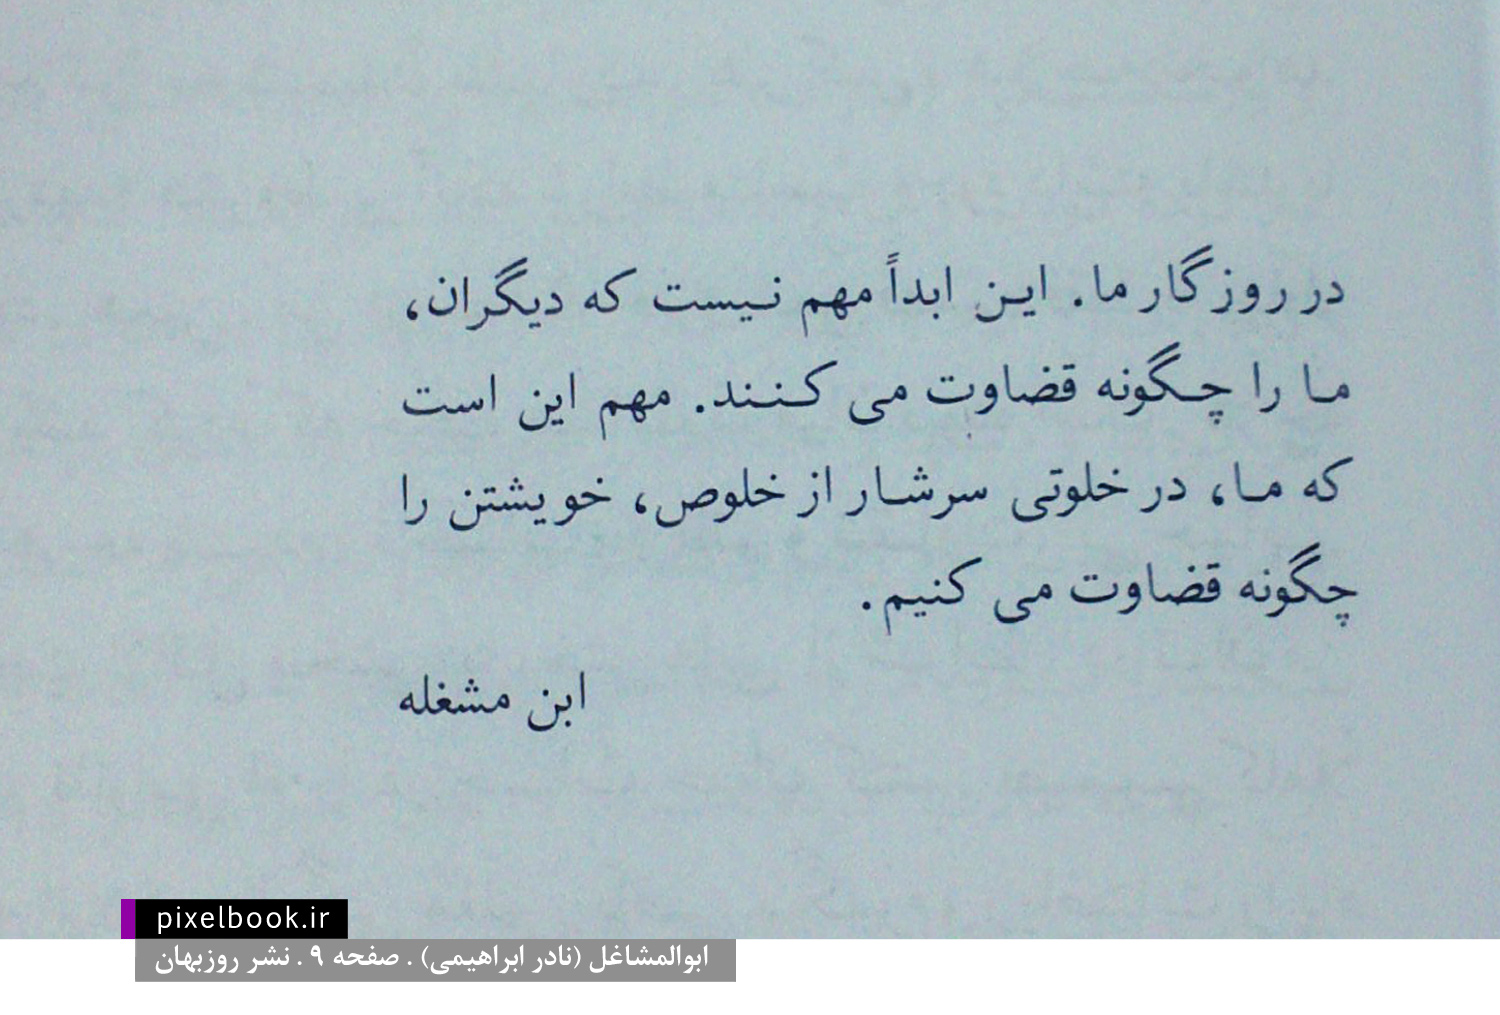 در روزگار ما. این ابداً مهم نیست که دیگران،
ما را چگونه قضاوت می کنند. مهم این است
که ما، در خلوتی سرشار از خلوص، خویشتن را
چگونه قضاوت می کنیم.
ابن مشغله
pixelbook.ir
ابوالمشاغل (نادر ابراهیمی) . صفحه ۹ . نشر روزبهان